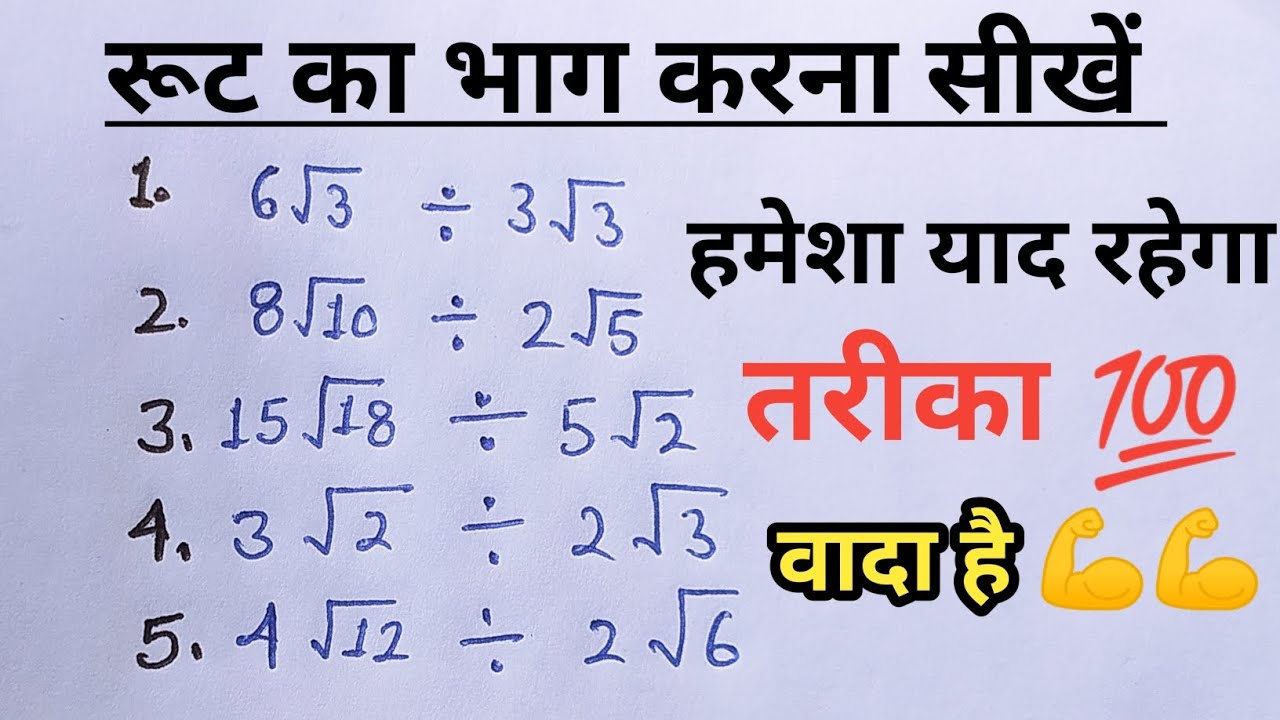 रूट का भाग करना सीखें
1. 6√3 ÷ 3√3
2. 8√10 ÷ 2√5
3. 15√18 ÷ 5√2
4. 3√2 ÷ 2√3
5. 4√12 ÷ 2√6
हमेशा याद रहेगा
तरीका 💯
वादा है 💪💪